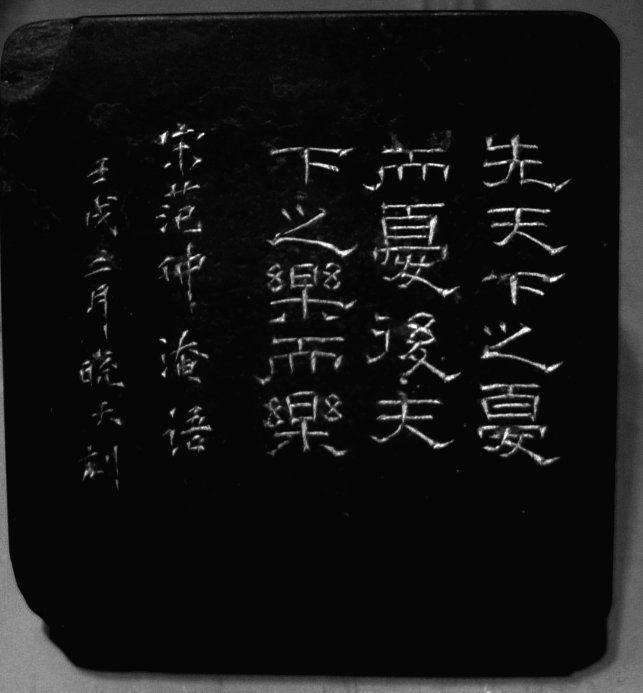 先天下之憂
而憂後天
下之樂而樂
宋范仲淹语
壬戌五月晓天刻